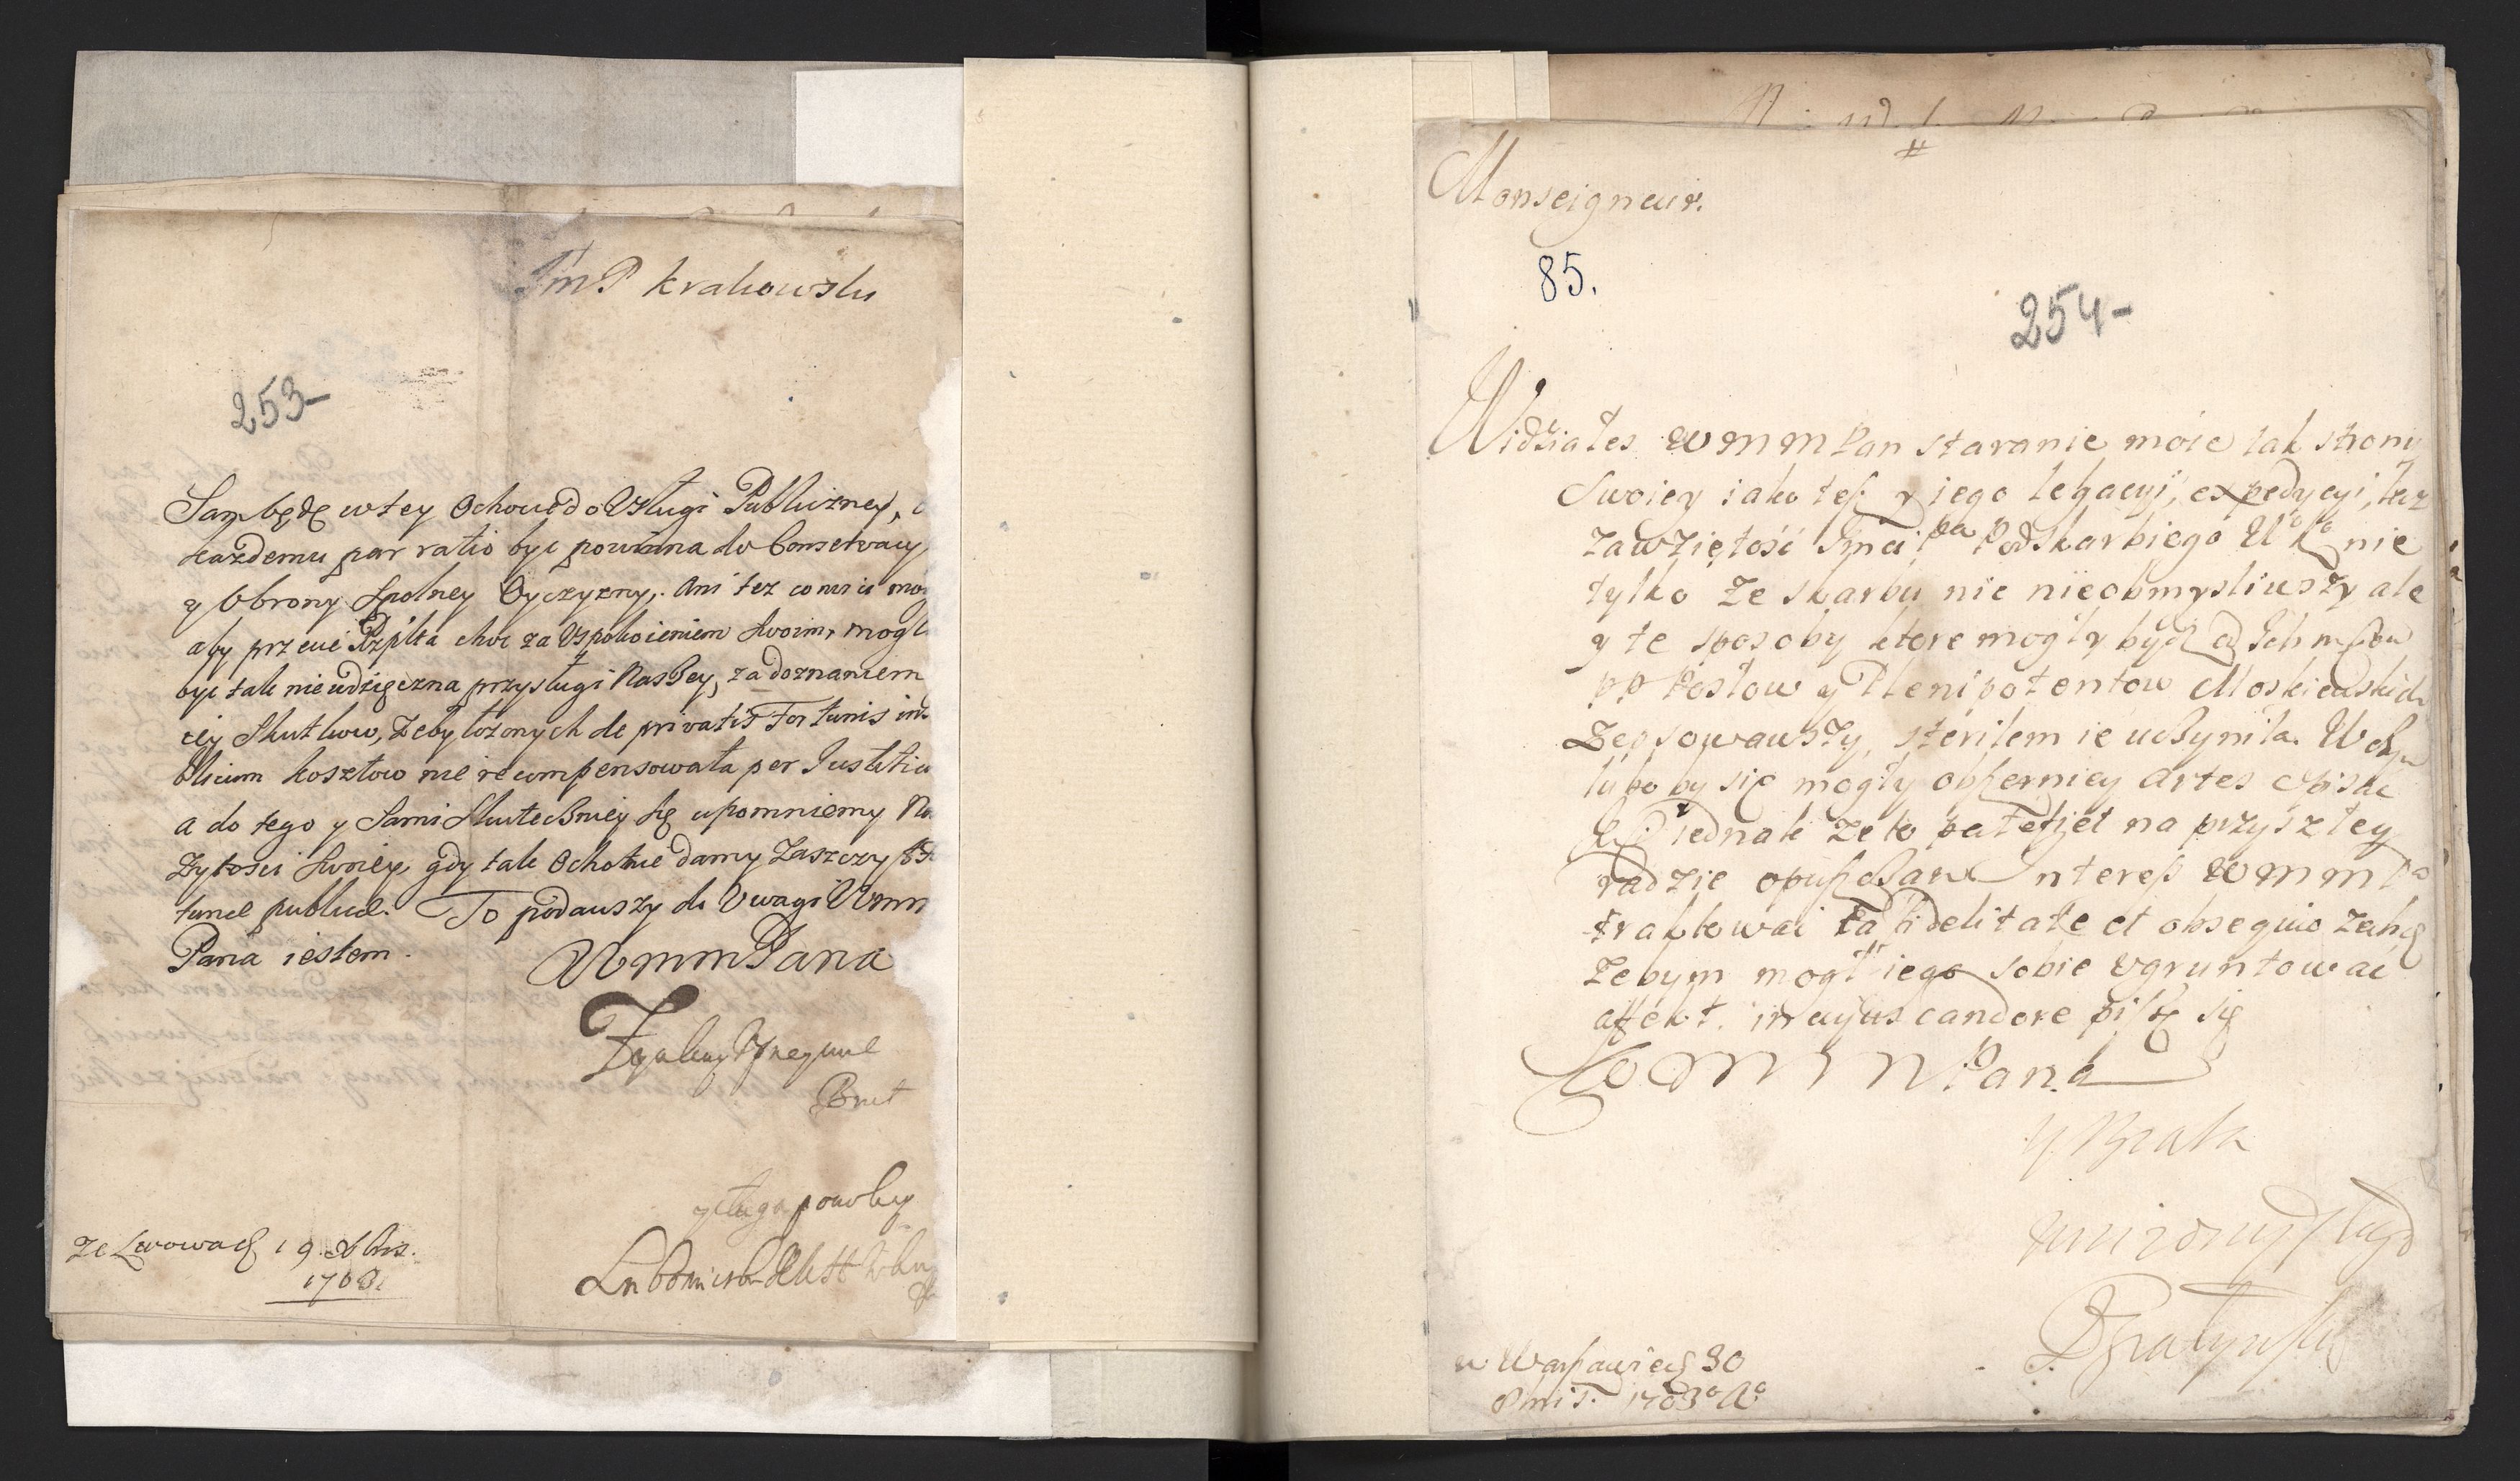 Jm P krakowski
253-
Sam będę w tey Ochocie do Usługi Publiczney,
każdemu par ratio być powinna do Conserwacy
y Obrony Spolney Oyczyzny. Ani tez
aby przecie Rzplta choc za Uspokoieniem swoim, mogł
być tak niewdzięczna przysługi Naszey, za doznaniem
iey Skutkow, zeby łożonych de privatis Fortunis in
blicum kosztow nie recompensowała per Iustitia
a do tego y Sami Skuteczniey się upomniemy Na
publice. To podawszy do Uwagi Wmm
Pana iestem.
WmmPana
Brat
y sługa powolny
Lubomirski
ze Lwowa d 19 Xbris.
1703.
Monseigneur.
85.
254-
Widziałes WMM Pan staranie moie tak strony
Swoiey iako tesz y iego legacyi, expedycyi, lecz
zawziętość Jmci Pa Podskarbiego W° K° nie
tylko ze skarbu nic nieobmysliwszy ale
y te sposoby ktore mogły bydź od Ich
pp Posłow y Plenipotentow Moskiewskich
zepsowawszy, sterilem ie uczyniła.
lubo by się mogły obszerniey artes
iednak ze to patefiet na przyszłey
radzie opuszczam Interess WMM Pa
traktować ea fidelitate et obsequio zechcę
zebym mogł iego sobie ugruntować
affekt. in cujus candore piszę się
WMMPana
y Brata
unizony sługa
Działyński
w Warszawie d 30
Xbris. 1703° A°